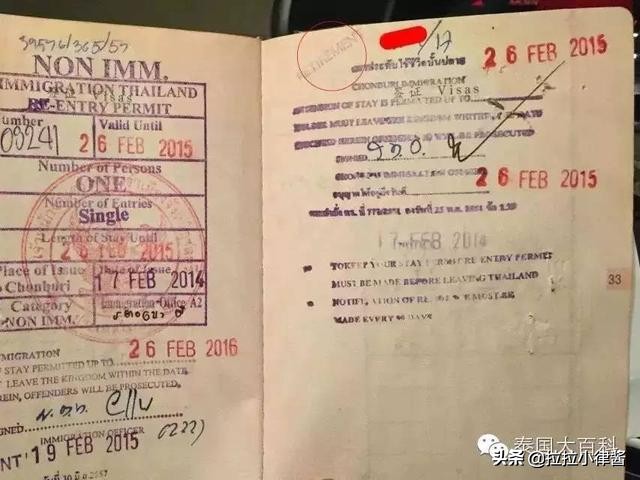 39576/365/57
NON IMM.
IMMIGRATION THAILAND
RE-ENTRY PERMIT
Number
Valid Until
09241
26 FEB 2015
Number of Persons
ONE
Number of Entries
Single
Length of Stay Until
26 FEB 2015
Place of Issue
Date of Issue
Chonburi
17 FEB 2014
Category
Immigration Office A2
NON IMM.
IMMIGRATION
STAY PERMITTED UP TO
26 FEB 2016
LEAVE THE KINGDOM WITHIN THE DATE
HEREIN, OFFENDERS WILL BE PROSECUTED.
SIGNED
IMMIGRATION OFFICER
19 FEB 2015
RETIREMENT
26 FEB 2015
CHONBURI IMMIGRATION
签证 Visas
EXTENSION OF STAY IS PERMITTED UP TO
HOLDER MUST LEAVE THE KINGDOM WITHIN THE DATE
SPECIFIED HEREIN OFFENDERS WILL BE PROSECUTED
SIGNED
26 FEB 2015
17 FEB 2014
TO KEEP YOUR STAY PERMIT RE-ENTRY PERMIT
MUST BE MADE BEFORE LEAVING THAILAND
NOTIFICATION OF RESIDENCE MUST BE
MADE EVERY 90 DAYS
33
泰国大百科
头条 @拉拉小律酱